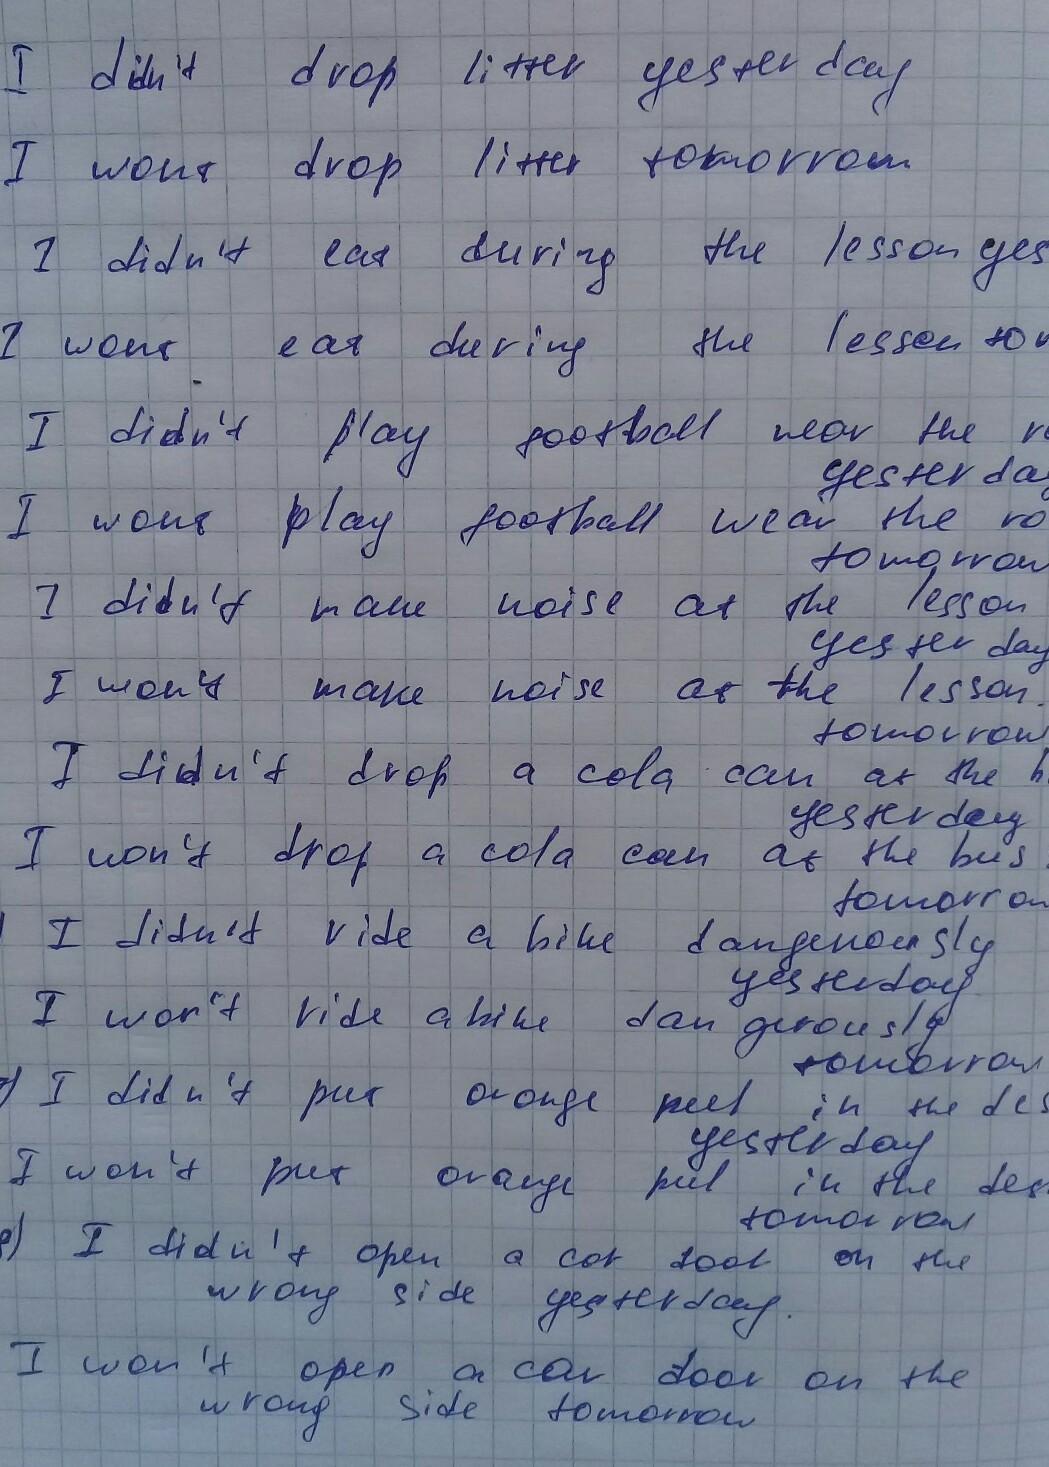 I didn't drop litter yesterday
I wont drop litter tomorrow
I didn't eat during the lesson yes
I wont eat during the lesson tom
I didn't play football near the ro
yesterday
I wont play football wear the ro
tomorrow
I didn't make noise at the lesson
yesterday
I won't make noise at the lesson.
tomorrow
I didn't drop a cola can at the b
yesterday
I won't drop a cola can at the bus
tomorrow
I didn't ride a bike dangerously
yesterday
I won't ride a bike dangerously
tomorrow
I didn't put orange peel in the des
yesterday
I won't put orange peel in the des
tomorrow
I didn't open a car door on the
wrong side yesterday.
I won't open a car door on the
wrong side tomorrow